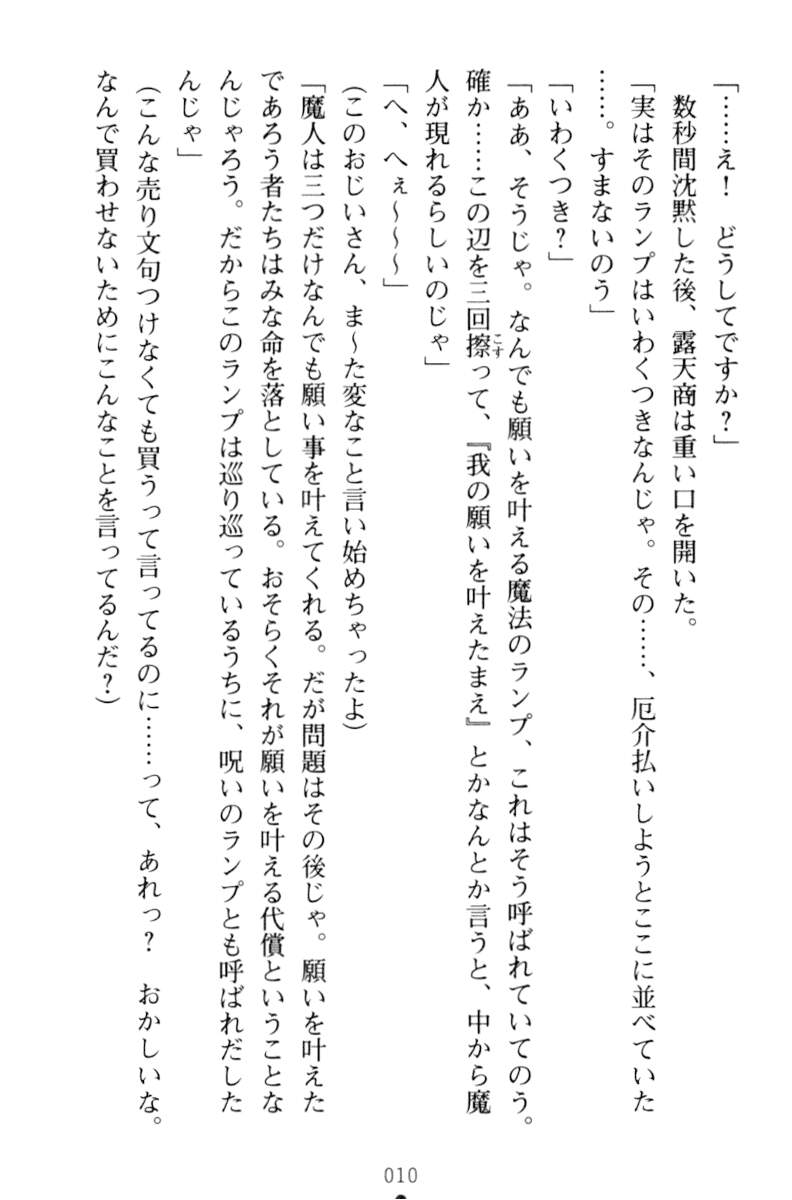 「……え！　どうしてですか？」
　数秒間沈黙した後、露天商は重い口を開いた。
「実はそのランプはいわくつきなんじゃ。その……、厄介払いしようとここに並べていた
……。すまないのう」
「いわくつき？」
「ああ、そうじゃ。なんでも願いを叶える魔法のランプ、これはそう呼ばれていてのう。
確か……この辺を三回擦こすって、『我の願いを叶えたまえ』とかなんとか言うと、中から魔
人が現れるらしいのじゃ」
「へ、へぇ〜〜〜」
（このおじいさん、ま〜た変なこと言い始めちゃったよ）
「魔人は三つだけなんでも願い事を叶えてくれる。だが問題はその後じゃ。願いを叶えた
であろう者たちはみな命を落としている。おそらくそれが願いを叶える代償ということな
んじゃろう。だからこのランプは巡り巡っているうちに、呪いのランプとも呼ばれだした
んじゃ」
（こんな売り文句つけなくても買うって言ってるのに……って、あれっ？　おかしいな。
なんで買わせないためにこんなことを言ってるんだ？）
010